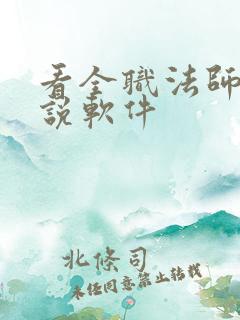 看全職法師
說軟件
北條司
未任同意禁止转载